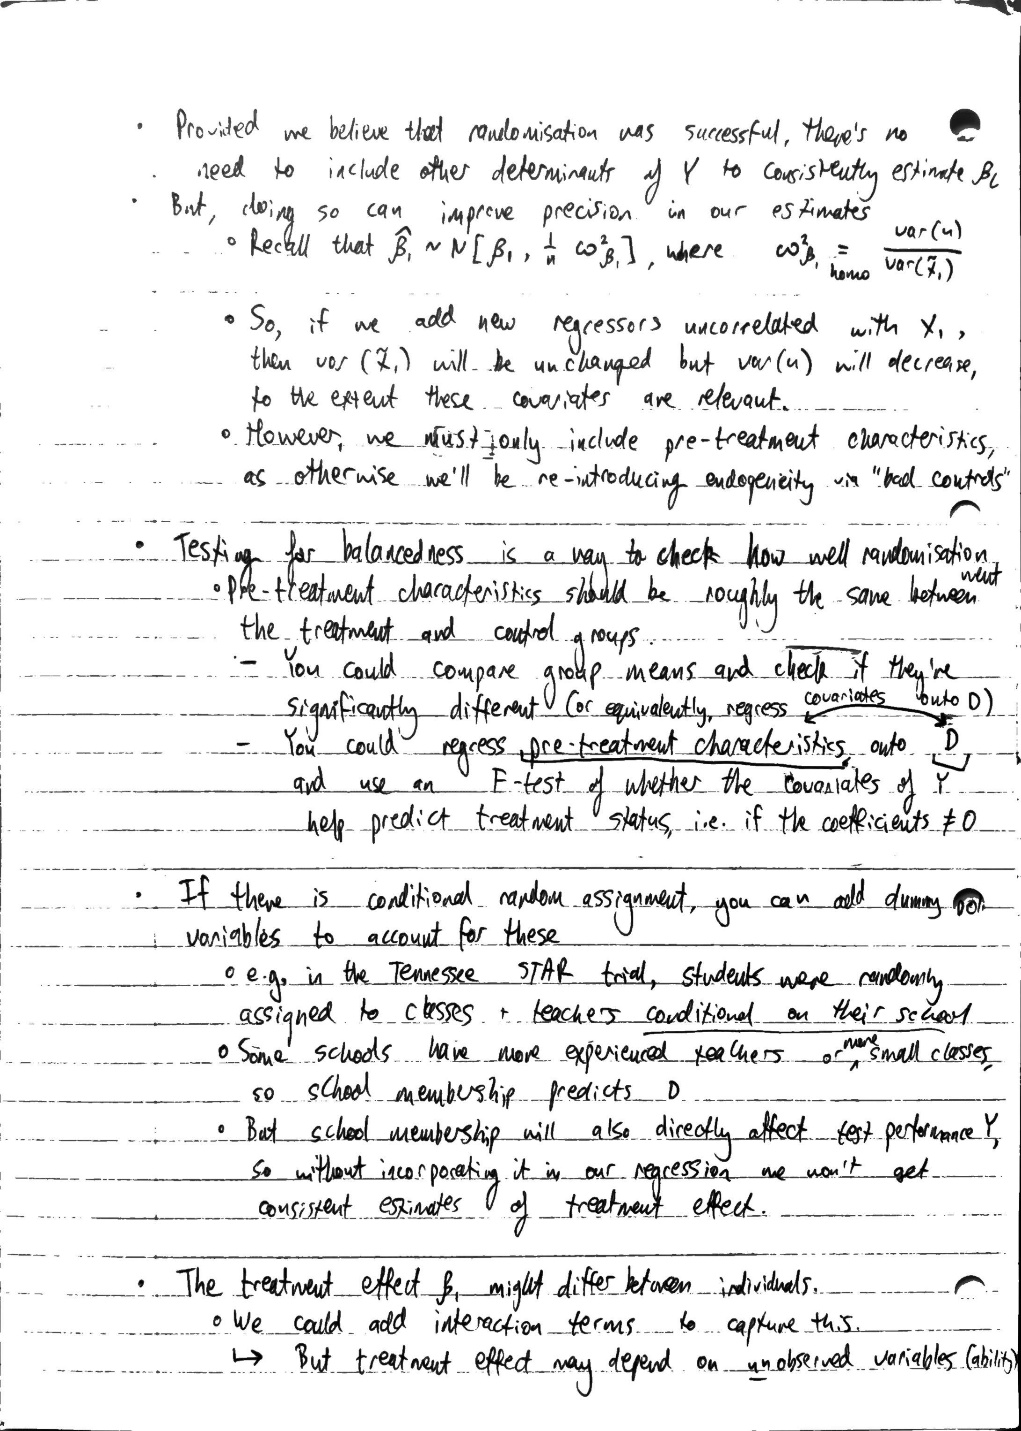 • Provided we believe that randomisation was successful, there's no
need to include other determinants of Y to consistently estimate β₁
• But, doing so can improve precision in our estimates
◦ Recall that β̂₁ ~ N[β₁, 1/n ω²β₁], where ω²β₁ =homo var(u)/var(x̃₁)
◦ So, if we add new regressors uncorrelated with X₁,
then var(x̃₁) will be unchanged but var(u) will decrease,
to the extent these covariates are relevant.
◦ However, we must only include pre-treatment characteristics,
as otherwise we'll be re-introducing endogeneity via "bad controls"
• Testing for balancedness is a way to check how well randomisation went
◦ Pre-treatment characteristics should be roughly the same between
the treatment and control groups.
– You could compare group means and check if they're
significantly different (or equivalently, regress covariates onto D)
– You could regress pre-treatment characteristics onto D
and use an F-test of whether the covariates of Y
help predict treatment status, i.e. if the coefficients ≠ 0
• If there is conditional random assignment, you can add dummy
variables to account for these
◦ e.g. in the Tennessee STAR trial, students were randomly
assigned to classes + teachers conditional on their school
◦ Some schools have more experienced teachers or more small classes,
so school membership predicts D
• But school membership will also directly affect test performance Y,
so without incorporating it in our regression we won't get
consistent estimates of treatment effect.
• The treatment effect β₁ might differ between individuals.
◦ We could add interaction terms to capture this.
↳ But treatment effect may depend on unobserved variables (ability)